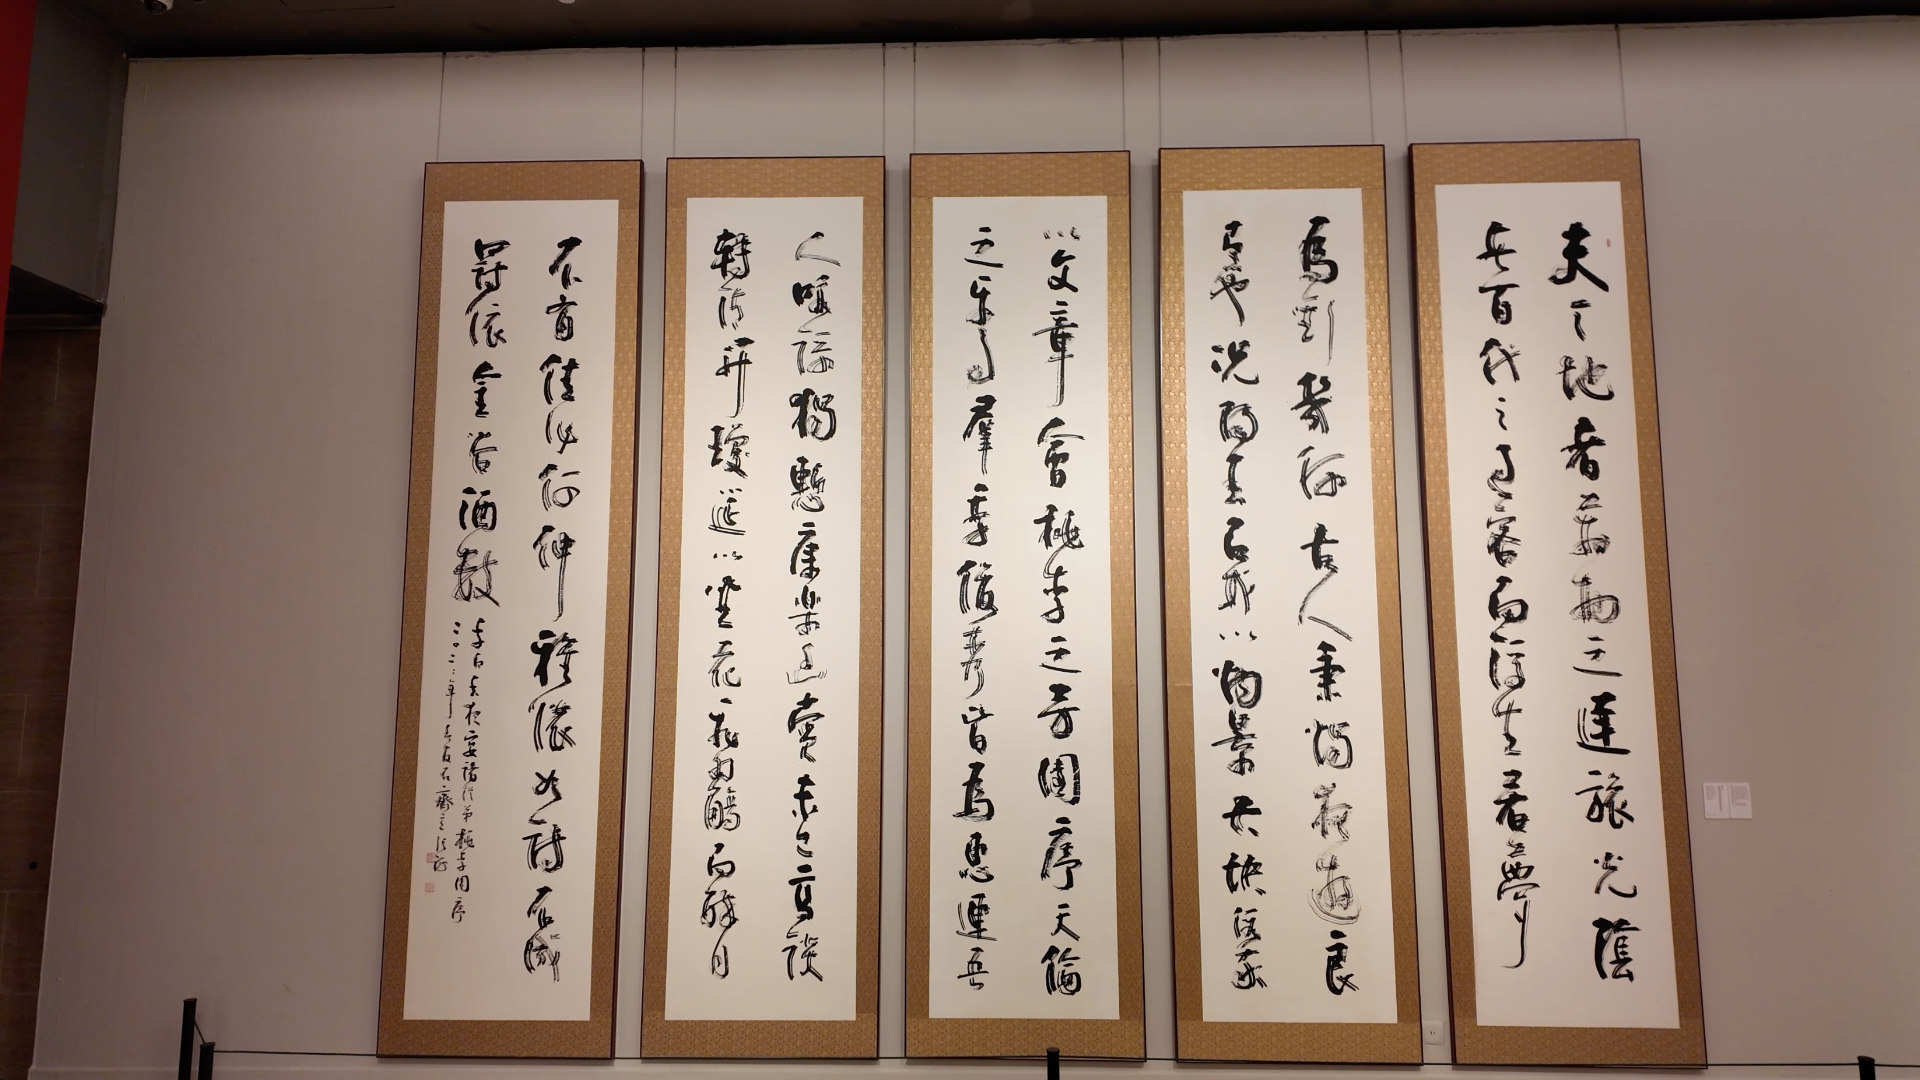 夫天地者萬物之逆旅光陰
者百代之過客而浮生若夢
爲歡幾何古人秉燭夜遊良
有以也況陽春召我以煙景大塊假我
以文章會桃李之芳園序天倫
之樂事羣季俊秀皆爲惠連吾
人咏歌獨慙康樂幽賞未已高談
轉清開瓊筵以坐花飛羽觴而醉月
不有佳詠何伸雅懷如詩不成
罰依金谷酒數
李白春夜宴諸從弟桃李園序
二〇二二年